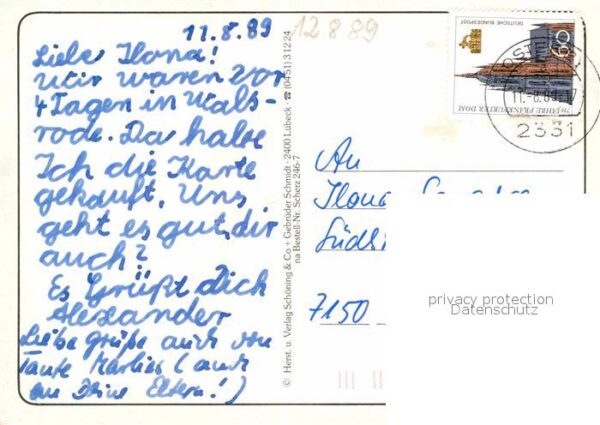 11.8.89
Liebe Ilona!
Wir waren vor
4 Tagen in Wals-
rode. Da habe
Ich die Karte
gekauft. Uns
geht es gut, dir
auch?
Es Grüßt dich
Alexander
Liebe Grüße auch von
Tante Marlies (auch
an Deine Eltern!)
© Herst. u. Verlag Schöning & Co + Gebrüder Schmidt · 2400 Lübeck · ☎ (0451) 31224
na Bestell-Nr. Scherz 246-7
12.8.89
DEUTSCHE BUNDESPOST
60
JAHRE FRANKFURTER DOM
11.-8.89.-17
2331
An
Ilona
7150
privacy protection
Datenschutz